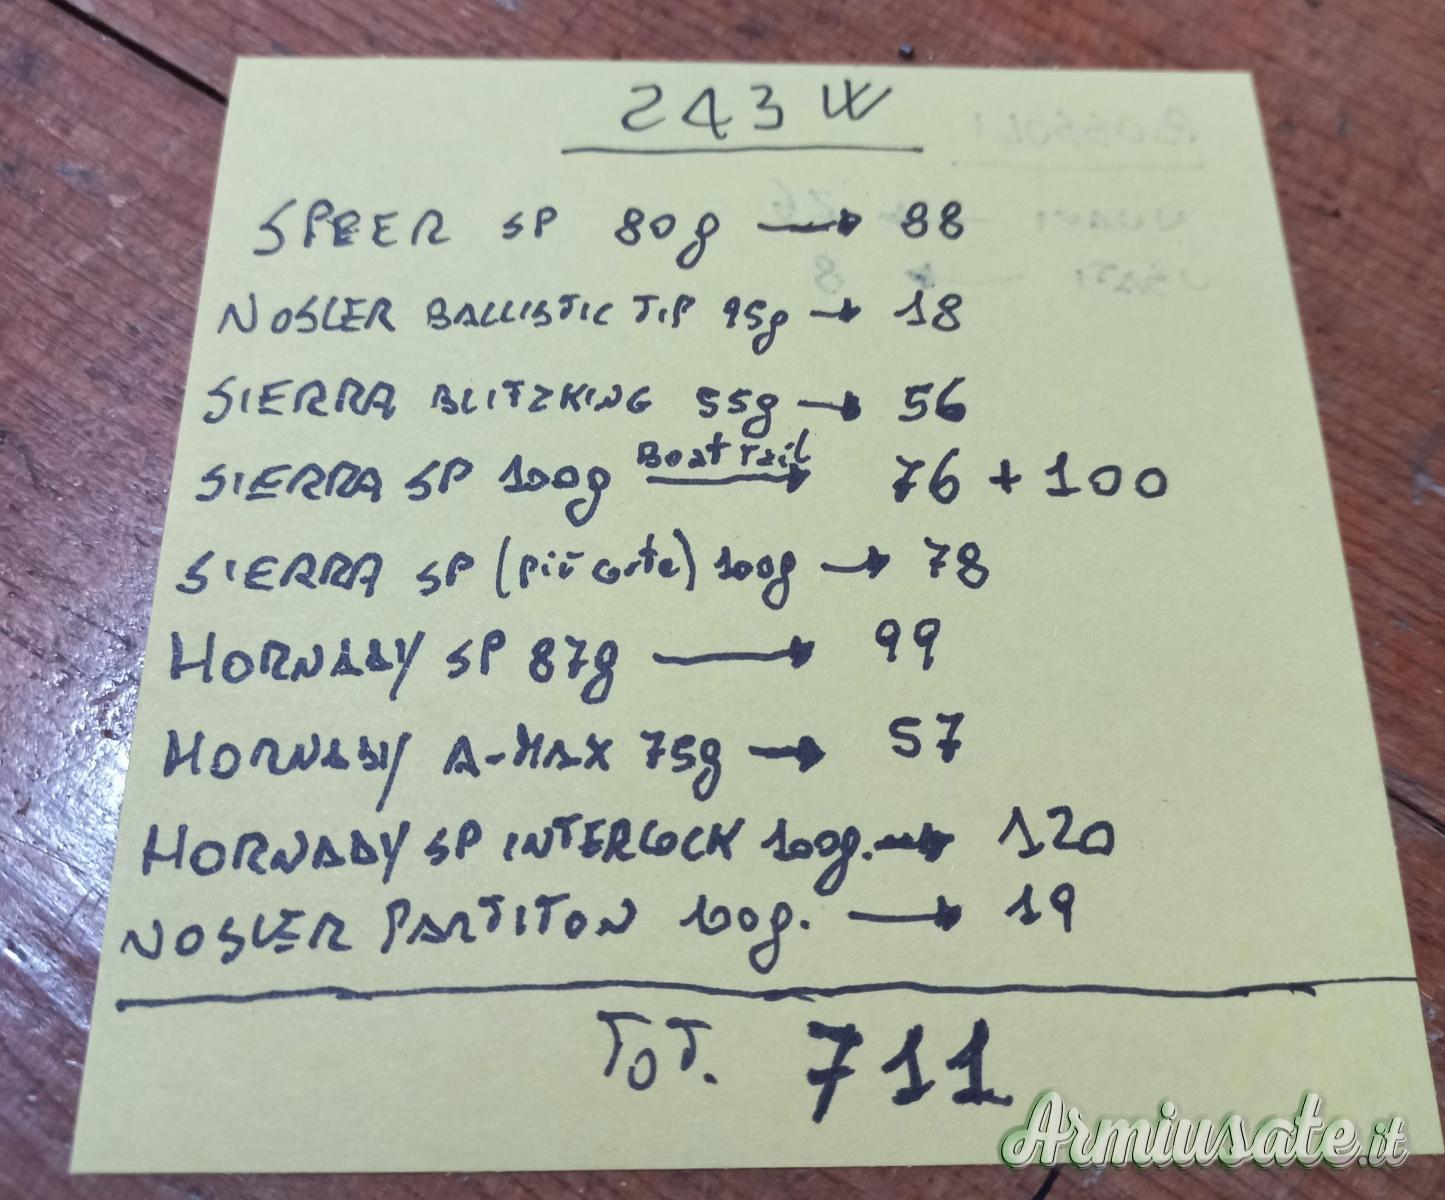 243 W
SPEER SP 80g → 88
NOSLER BALLISTIC TIP 95g → 18
SIERRA BLITZKING 55g → 56
SIERRA SP 100g Boat Tail → 76 + 100
SIERRA SP (più corte) 100g → 78
HORNADY SP 87g → 99
HORNADY A-MAX 75g → 57
HORNADY SP INTERLOCK 100g. → 120
NOSLER PARTITON 100g. → 19
TOT. 711
Armiusate.it